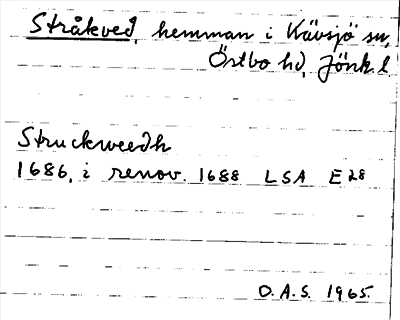 Stråkved, hemman i Kävsjö sn,
Östbo hd, Jönk. l
Struckweedh
1686, i renov. 1688 LSA E28
O.A.S. 1965.